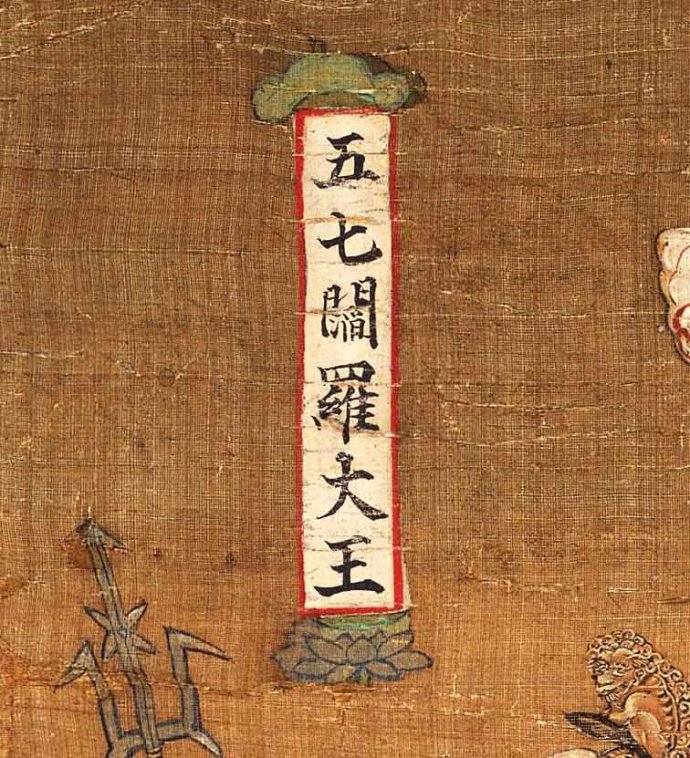 五七閻羅大王